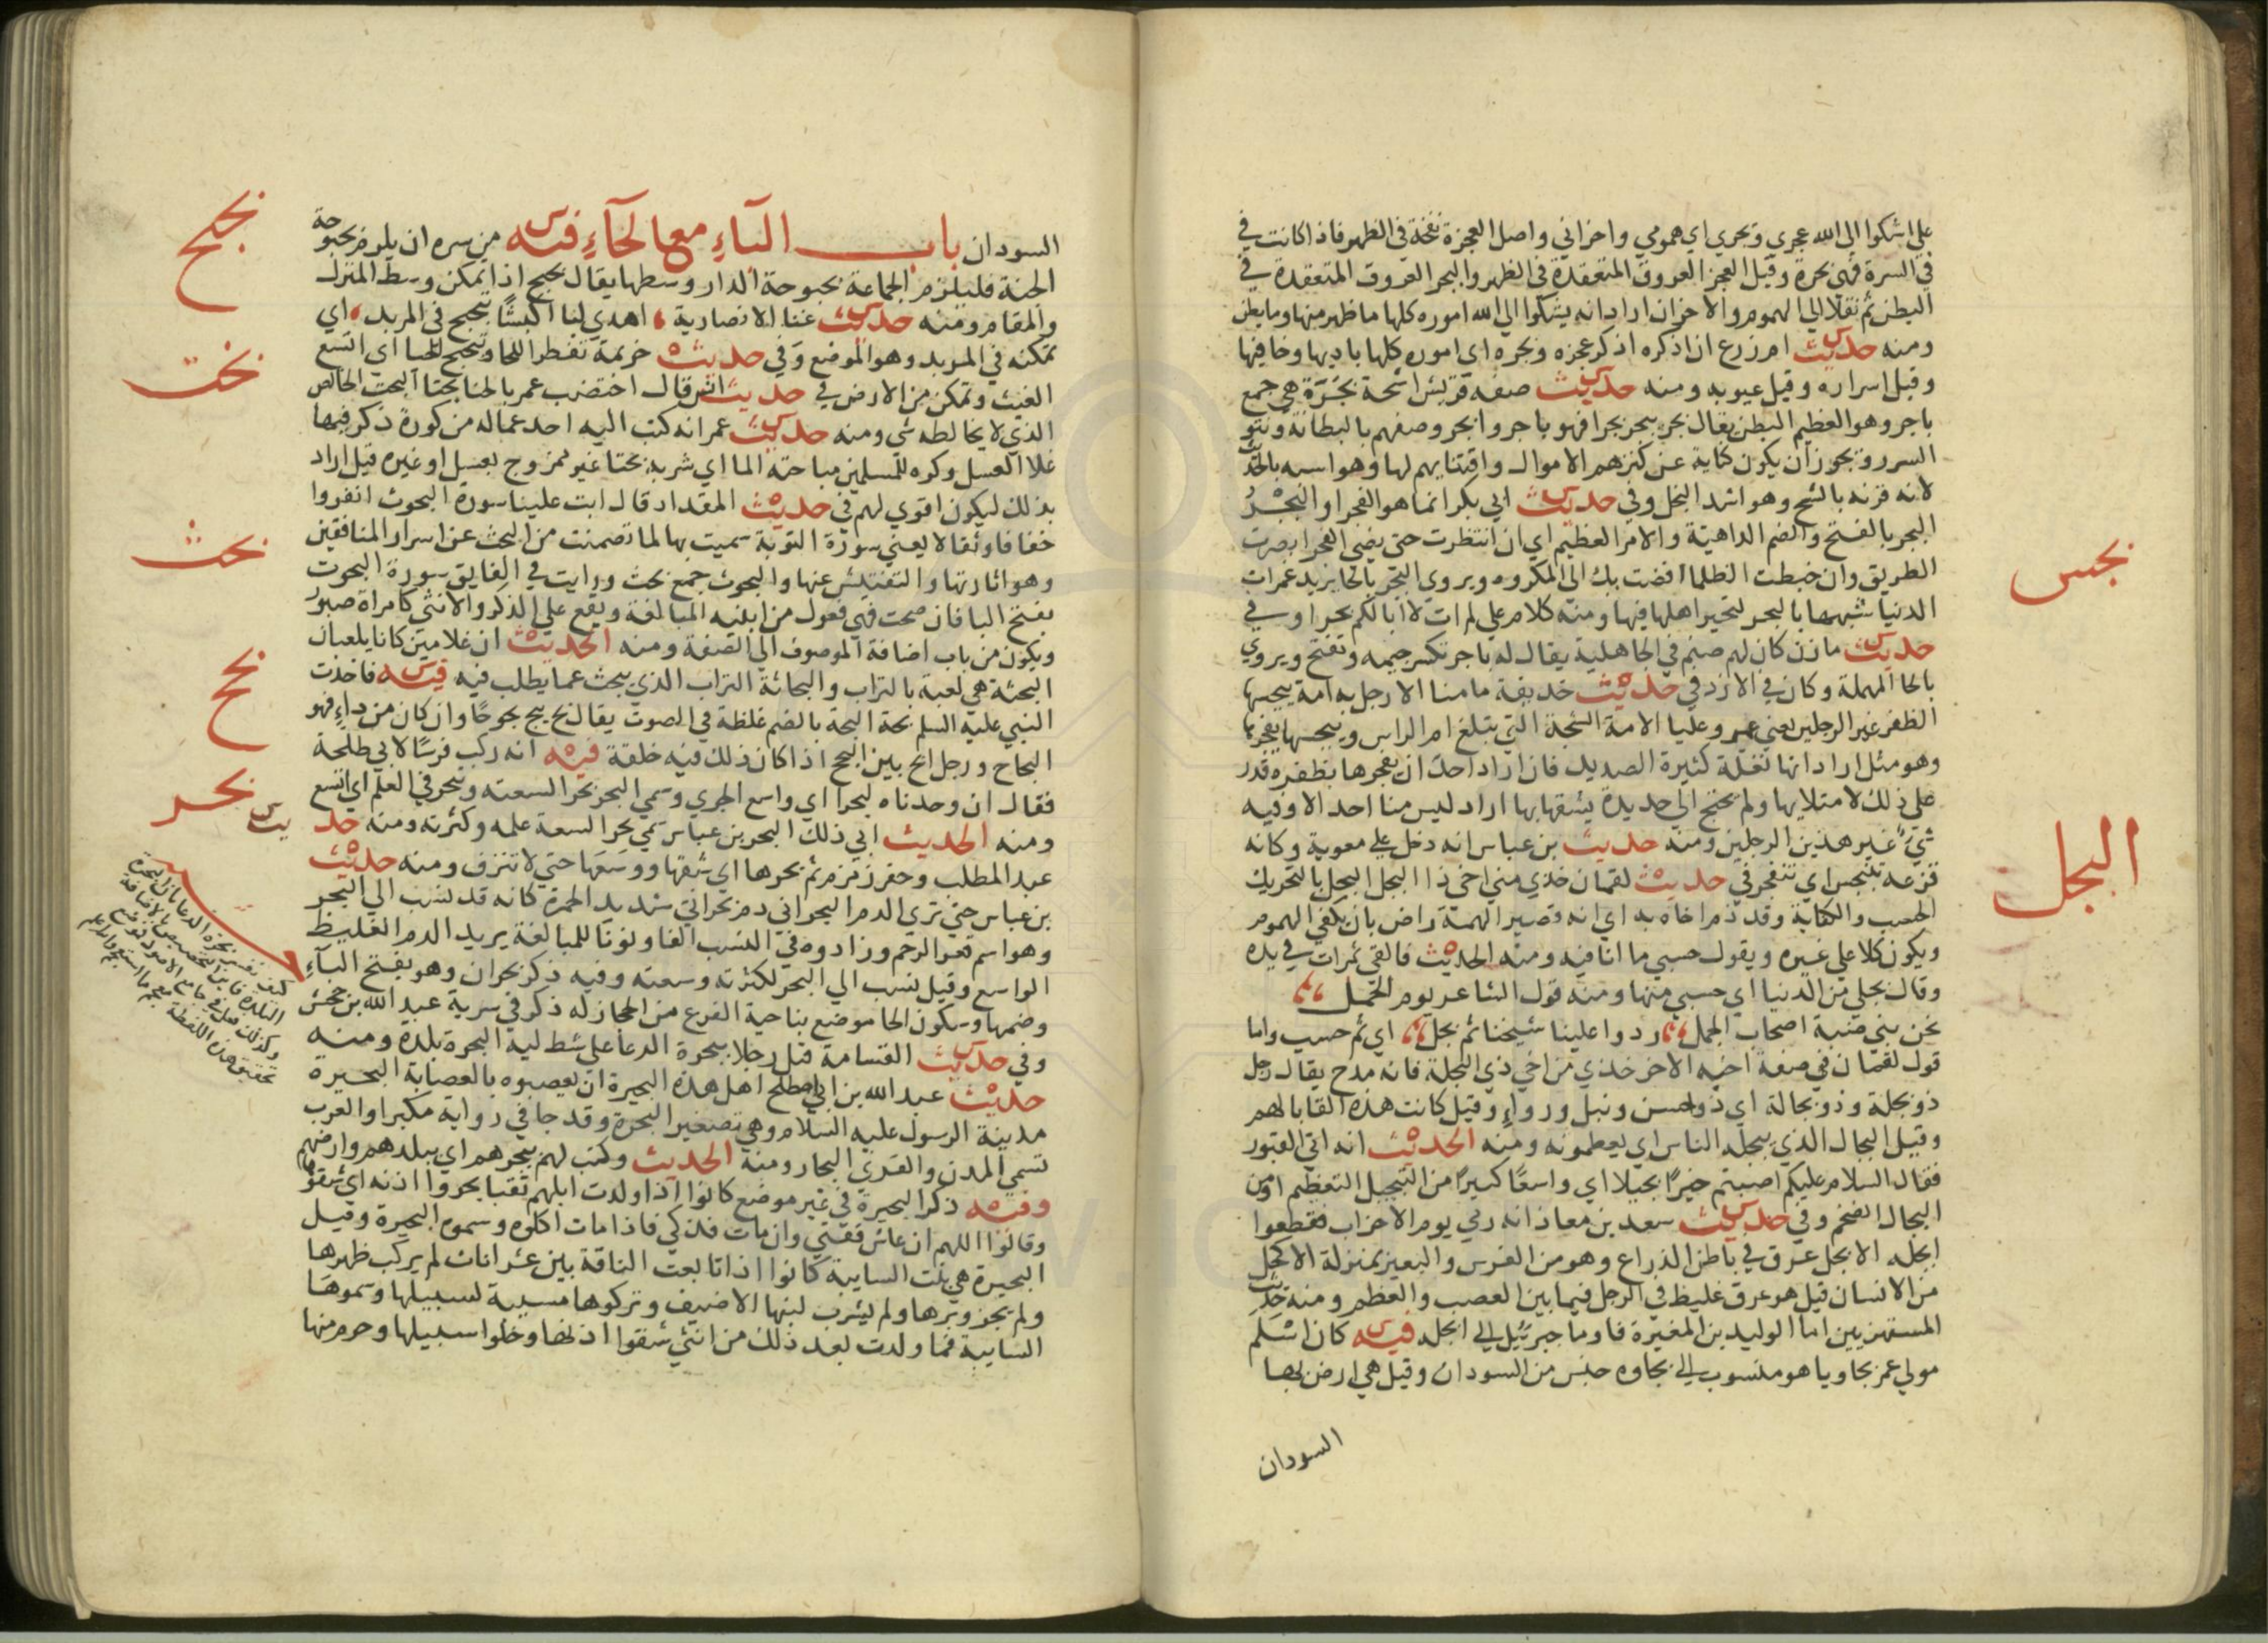 علي اشكوا الي الله عجري وبجري اي همومي واحزاني واصل العجزة نفخة في الظهر فاذا كانت في
في السرة فهي بجرة وقيل العجر العروق المتعقدة في الظهر والبجر العروق المتعقدة في
البطن ثم نقلا الي الهموم والاحزان اراد انه يشكوا الي الله اموره كلها ما ظهر منها وما بطن
ومنه حديث ام زرع ان اذكره اذكر عجره وبجره اي اموره كلها باديها وخافيها
وقيل اسراره وقيل عيوبه ومنه حديث صفة قريش اشحة بجرة هي جمع
باجر وهو العظيم البطن يقال بجر يبجر بجرا فهو باجر وابجر وصفهم بالبطانة ونتو
السرر ويجوز ان يكون كناية عن كنزهم الاموال واقتنايهم لها وهو اشبه بالحديث
لانه قرنه بالشح وهو اشد البخل وفي حديث ابي بكر انما هو الفجر او البجر
البجر بالفتح والضم الداهية والامر العظيم اي ان انتظرت حتى يضي الفجر ابصرت
الطريق وان خبطت الظلما افضت بك الى المكروه ويروي البحر بالحا يريد غمرات
الدنيا شبهها بالبحر لتحير اهلها فيها ومنه كلام علي لم ات لا ابا لكم بجرا وفي
حديث مازن كان لهم صنم في الجاهلية يقال له باجر تكسر جيمه وتفتح ويروي
بالحا المهملة وكان في الازد في حديث حذيفة ما منا الا رجل به امة يبجسها
الظفر غير الرجلين يعني عمر وعليا الامة الشجة التي تبلغ ام الراس ويبجسها يفجرها
وهو مثل اراد انها نغلة كثيرة الصديد فان اراد احد ان يفجرها بظفره قدر
علي ذلك لامتلايها ولم يحتج الي حديدة يشقها بها اراد ليس منا احد الا وفيه
شي غير هذين الرجلين ومنه حديث بن عباس انه دخل علي معوية وكانه
قزعة يتبجس اي تنفجر في حديث لقمان خذي مني اخي ذا البجل البجل بالتحريك
الحسب والكفاية وقد ذم اخاه به اي انه قصير الهمة راض بان يكفي الهموم
ويكون كلا علي غيره ويقول حسبي ما انا فيه ومنه الحديث فالقي تمرات في يده
وقال بجلي من الدنيا اي حسبي منها ومنه قول الشاعر يوم الجمل
نحن بني ضبة اصحاب الجمل ردوا علينا شيخنا ثم بجل اي ثم حسب واما
قول لقمان في صفة اخيه الاخر خذي من اخي ذي البجلة فانه مدح يقال رجل
ذو بجلة وذو بجالة اي ذو حسن ونبل ورواء وقيل كانت هذه القابا لهم
وقيل البجال الذي يبجله الناس اي يعظمونه ومنه الحديث انه اتي القبور
فقال السلام عليكم اصبتم خيرا بجيلا اي واسعا كثيرا من التبجيل التعظيم او من
البجال الضخم وفي حديث سعد بن معاذ انه رمي يوم الاحزاب فقطعوا
ابجله الابجل عرق في باطن الذراع وهو من الفرس والبعير بمنزلة الاكحل
من الانسان قيل هو عرق غليظ في الرجل فيما بين العصب والعظم ومنه حديث
المستهزيين اما الوليد بن المغيرة فاوما جبرئيل الي ابجله فيه كان اسلم
مولي عمر بجاويا هو منسوب الي بجاوه جنس من السودان وقيل هي ارض بها
السودان
بجس
البجل
السودان باب الباء مع الحاء فيه من سره ان يلزم بحبوحة
الجنة فليلزم الجماعة بحبوحة الدار وسطها يقال بحبح اذا تمكن وسط المنزل
والمقام ومنه حديث غنا الانصارية اهدي لنا اكبشا تبحبح في المربد اي
تمكنه في المربد وهو الموضع وفي حديث خزيمة تفطر اللحا وتبحبح للحيا اي اتسع
الغيث وتمكن من الارض في حديث انس قال اختضب عمر بالحنا بحتا البحت الخالص
الذي لا يخالطه شي ومنه حديث عمر انه كتب اليه احد عماله من كورة ذكر فيها
غلا العسل وكره للمسلمين مباحتة الما اي شربه بحتا غير ممزوج بعسل او غيره قيل اراد
بذلك ليكون اقوي لهم في حديث المقداد قال ابت علينا سورة البحوث انفروا
خفافا وثقالا يعني سورة التوبة سميت بها لما تضمنت من البحث عن اسرار المنافقين
وهو اثارتها والتفتيش عنها والبحوث جمع بحث ورايت في الفايق سورة البحوث
بفتح البا فان صحت فهي فعول من ابنية المبالغة ويقع علي الذكر والانثي كامراة صبور
ويكون من باب اضافة الموصوف الي الصفة ومنه الحديث ان غلامين كانا يلعبان
البحثة هي لعبة بالتراب والبحاثة التراب الذي يبحث عما يطلب فيه فيه فاخذت
النبي عليه السلم بحة البحة بالضم غلظة في الصوت يقال بح يبح بحوحا وان كان من داء فهو
البحاح ورجل ابح بين البحح اذا كان ذلك فيه خلقة فيه انه ركب فرسا لابي طلحة
فقال ان وجدناه لبحرا اي واسع الجري وسمي البحر بحرا لسعته وتبحر في العلم اي اتسع
ومنه الحديث ابي ذلك البحر بن عباس سمي بحرا لسعة علمه وكثرته ومنه حديث
عبد المطلب وحفر زمزم ثم بحرها اي شقها ووسعها حتي لا تنزف ومنه حديث
بن عباس حتي تري الدم البحراني دم بحراني شديد الحمرة كانه قد نسب الي البحر
وهو اسم قعر الرحم وزادوه في النسب الفا ونونا للمبالغة يريد الدم الغليظ
الواسع وقيل نسب الي البحر لكثرته وسعته وفيه ذكر بحران وهو بفتح الباء
وضمها وسكون الحا موضع بناحية الفرع من الحجاز له ذكر في سرية عبد الله بن جحش
وفي حديث القسامة قتل رجلا ببحرة الرغا علي شط لية البحرة بلدة ومنه
حديث عبد الله بن ابي اصطلح اهل هذه البحيرة ان يعصبوه بالعصابة البحيرة
مدينة الرسول عليه السلام وهي تصغير البحرة وقد جا في رواية مكبرا والعرب
تسمي المدن والقري البحار ومنه الحديث وكتب لهم ببحرهم اي ببلدهم وارضهم
وفيه ذكر البحيرة في غير موضع كانوا اذا ولدت ابلهم سقبا بحروا اذنه اي شقوها
وقالوا اللهم ان عاش ففتي وان مات فذكي فاذا مات اكلوه وسموه البحيرة وقيل
البحيرة هي بنت السايبة كانوا اذا تابعت الناقة بين عشر اناث لم يركب ظهرها
ولم يجز وبرها ولم يشرب لبنها الا ضيف وتركوها مسيبة لسبيلها وسموها
السايبة فما ولدت بعد ذلك من انثي شقوا اذنها وخلوا سبيلها وحرم منها
بحح
بحت
بحث
بح
بحر